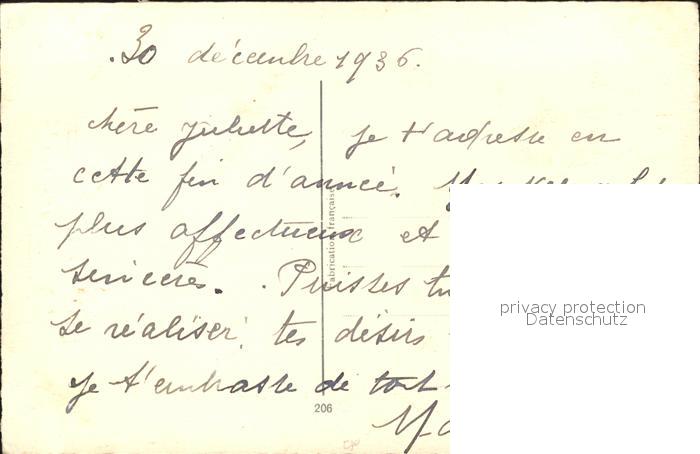 .30 décembre 1936.
chère Juliette, je t'adresse en
cette fin d'année.
plus affectueux et
sincères. Puisses tu
se réaliser tes désirs
je t'embrasse de tout
Fabrication française
206
privacy protection
Datenschutz